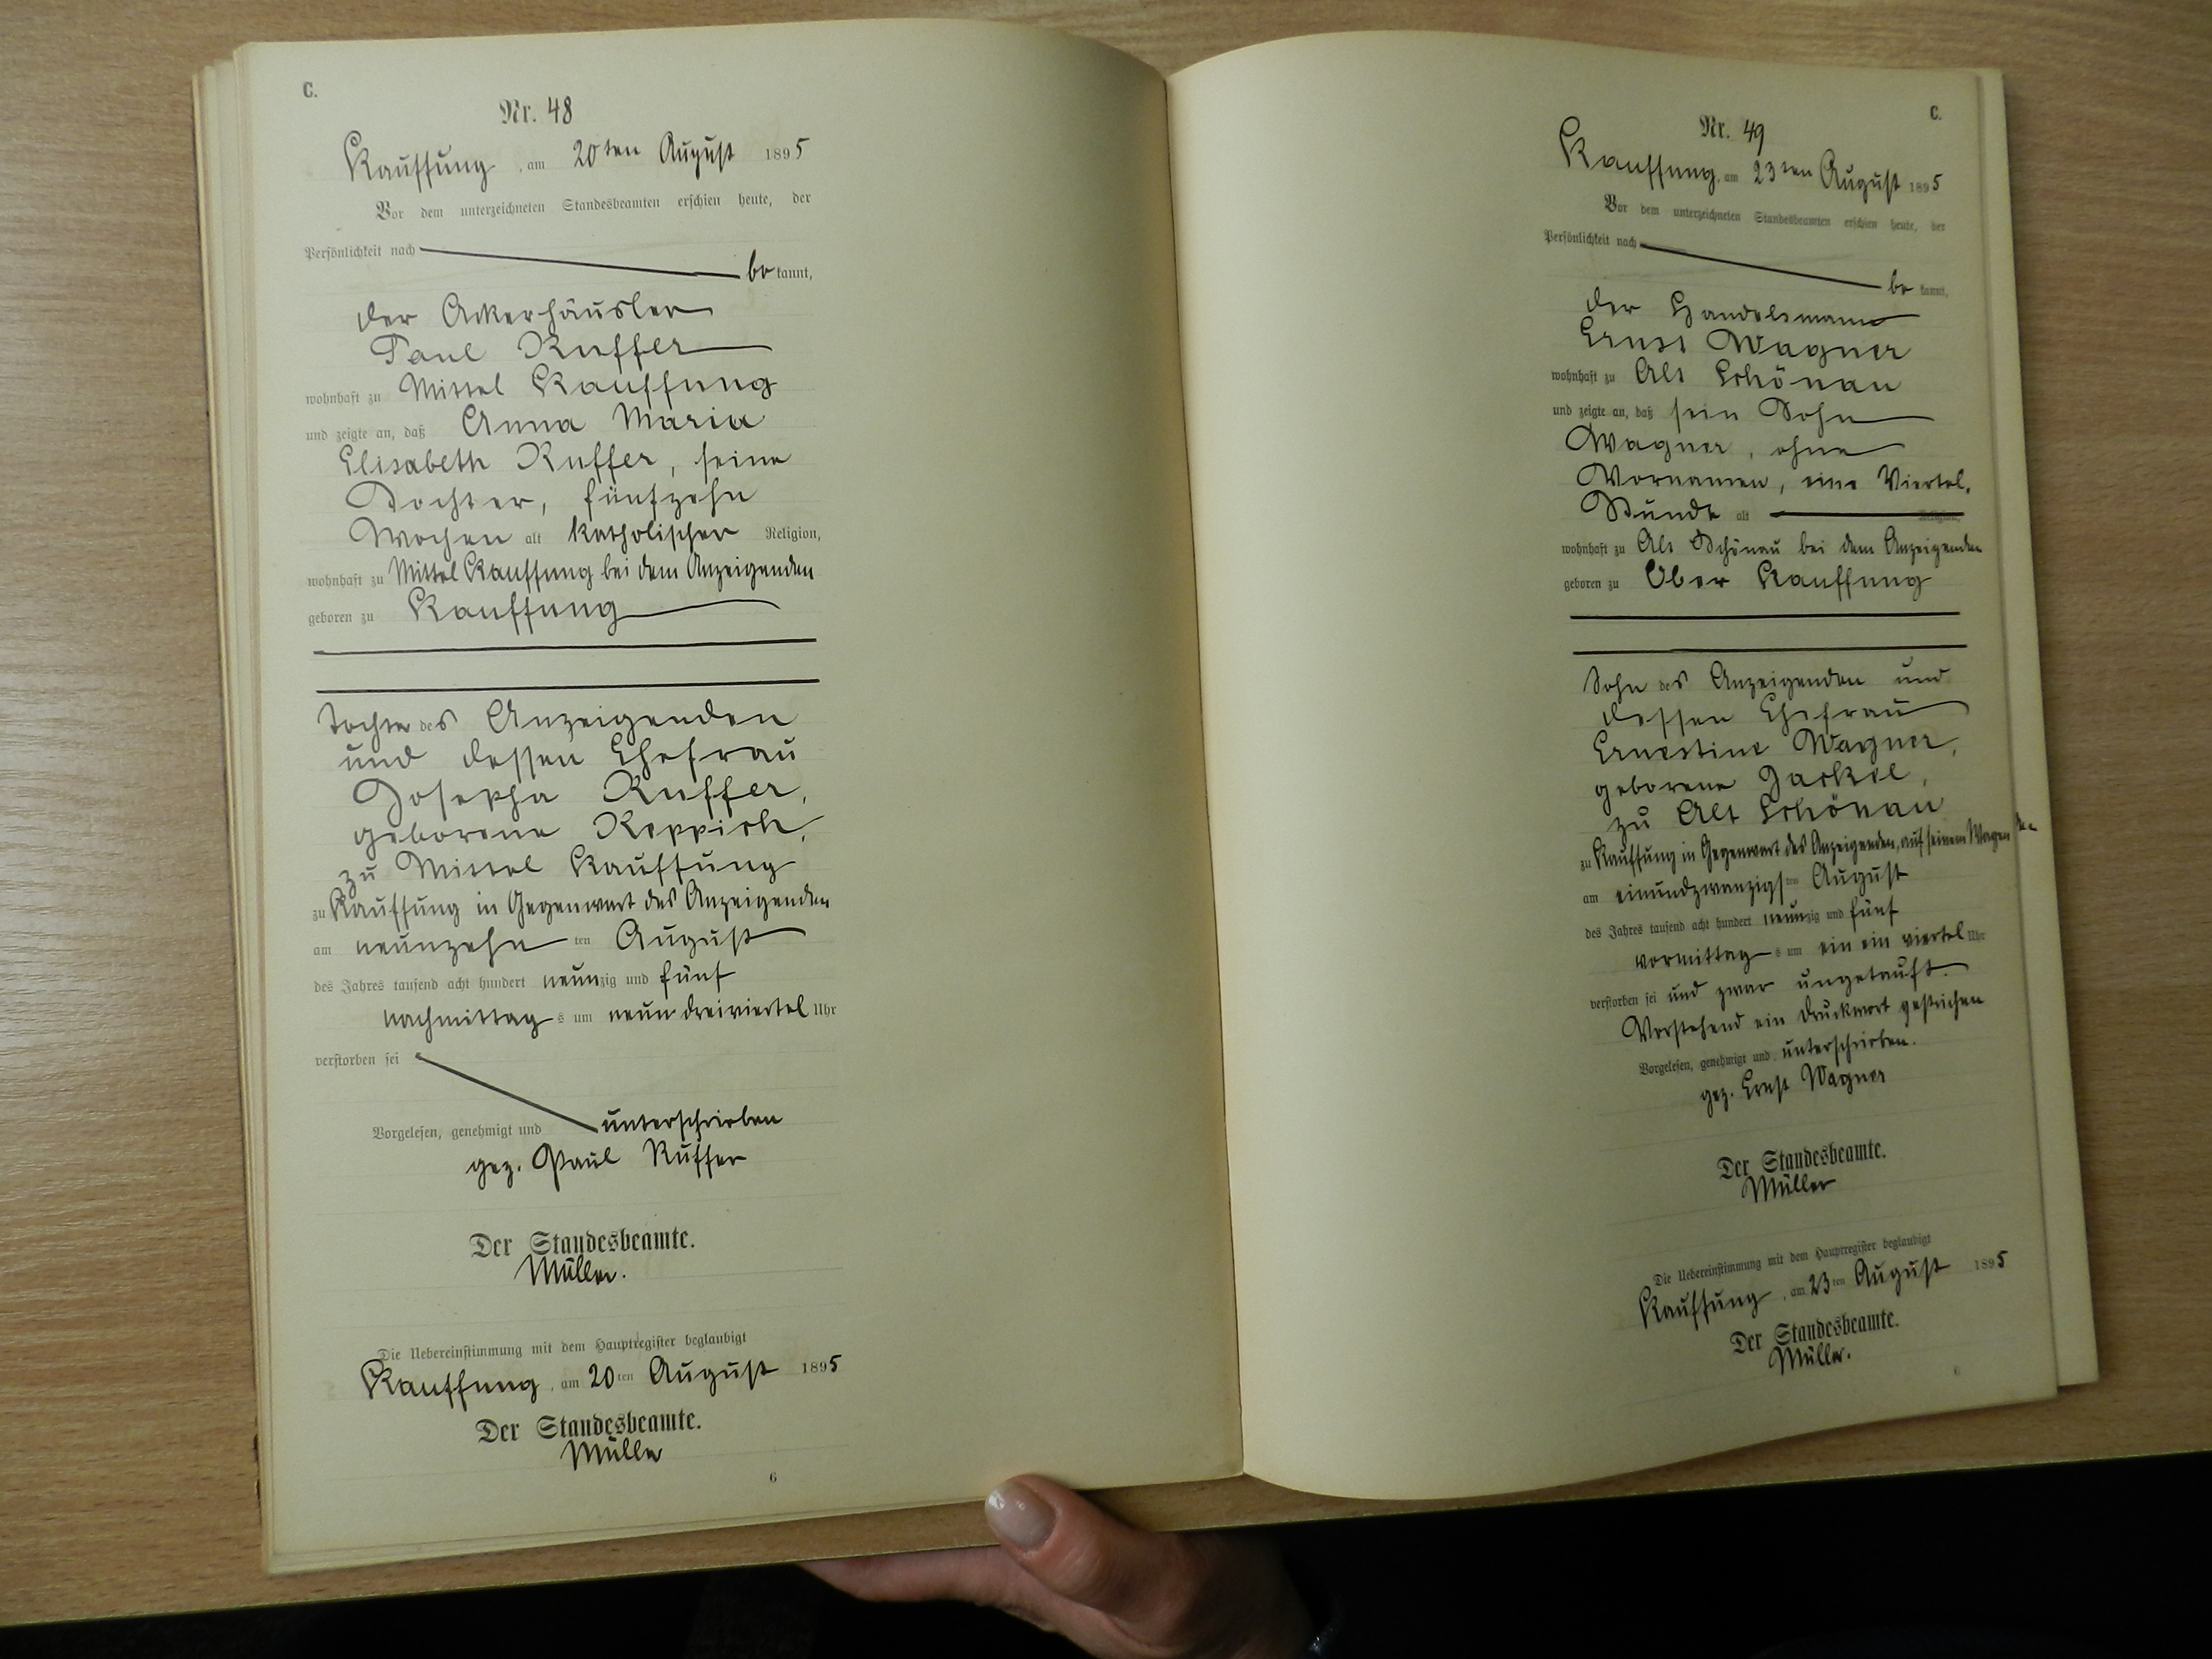 C.
Nr. 48
Kauffung, am 20ten August 1895
Vor dem unterzeichneten Standesbeamten erschien heute, der
Persönlichkeit nach
be kannt,
der Ackerhäusler
Paul Ruffer
wohnhaft zu Mittel Kauffung
und zeigte an, daß Anna Maria
Elisabeth Ruffer, seine
Tochter, fünfzehn
Wochen alt katholischer Religion,
wohnhaft zu Mittel Kauffung bei dem Anzeigenden
geboren zu Kauffung
Tochter des Anzeigenden
und dessen Ehefrau
Josepha Ruffer,
geborene Koppich,
zu Mittel Kauffung
zu Kauffung in Gegenwart des Anzeigenden
am neunzehn ten August
des Jahres tausend acht hundert neunzig und fünf
nachmittag s um neun dreiviertel Uhr
verstorben sei
Vorgelesen, genehmigt und unterschrieben
gez. Paul Ruffer
Der Standesbeamte.
Müller.
Die Uebereinstimmung mit dem Hauptregister beglaubigt
Kauffung, am 20ten August 1895
Der Standesbeamte.
Müller
6
C.
Nr. 49
Kauffung, am 23ten August 1895
Vor dem unterzeichneten Standesbeamten erschien heute, der
Persönlichkeit nach
be kannt,
der Handelsmann
Ernst Wagner
wohnhaft zu Alt Schönau
und zeigte an, daß sein Sohn
Wagner, ohne
Vornamen, eine Viertel-
Stunde alt Religion,
wohnhaft zu Alt Schönau bei dem Anzeigenden
geboren zu Ober Kauffung
Sohn des Anzeigenden und
dessen Ehefrau
Ernestine Wagner,
geborene Jäckel,
zu Alt Schönau
zu Kauffung in Gegenwart des Anzeigenden, auf seinem Wagen
am einundzwanzigs ten August
des Jahres tausend acht hundert neunzig und fünf
vormittag s um ein ein viertel Uhr
verstorben sei und zwar ungetauft.
Vorstehend ein Druckwort gestrichen
Vorgelesen, genehmigt und unterschrieben.
gez. Ernst Wagner
Der Standesbeamte.
Müller
Die Uebereinstimmung mit dem Hauptregister beglaubigt
Kauffung, am 23ten August 1895
Der Standesbeamte.
Müller.
6